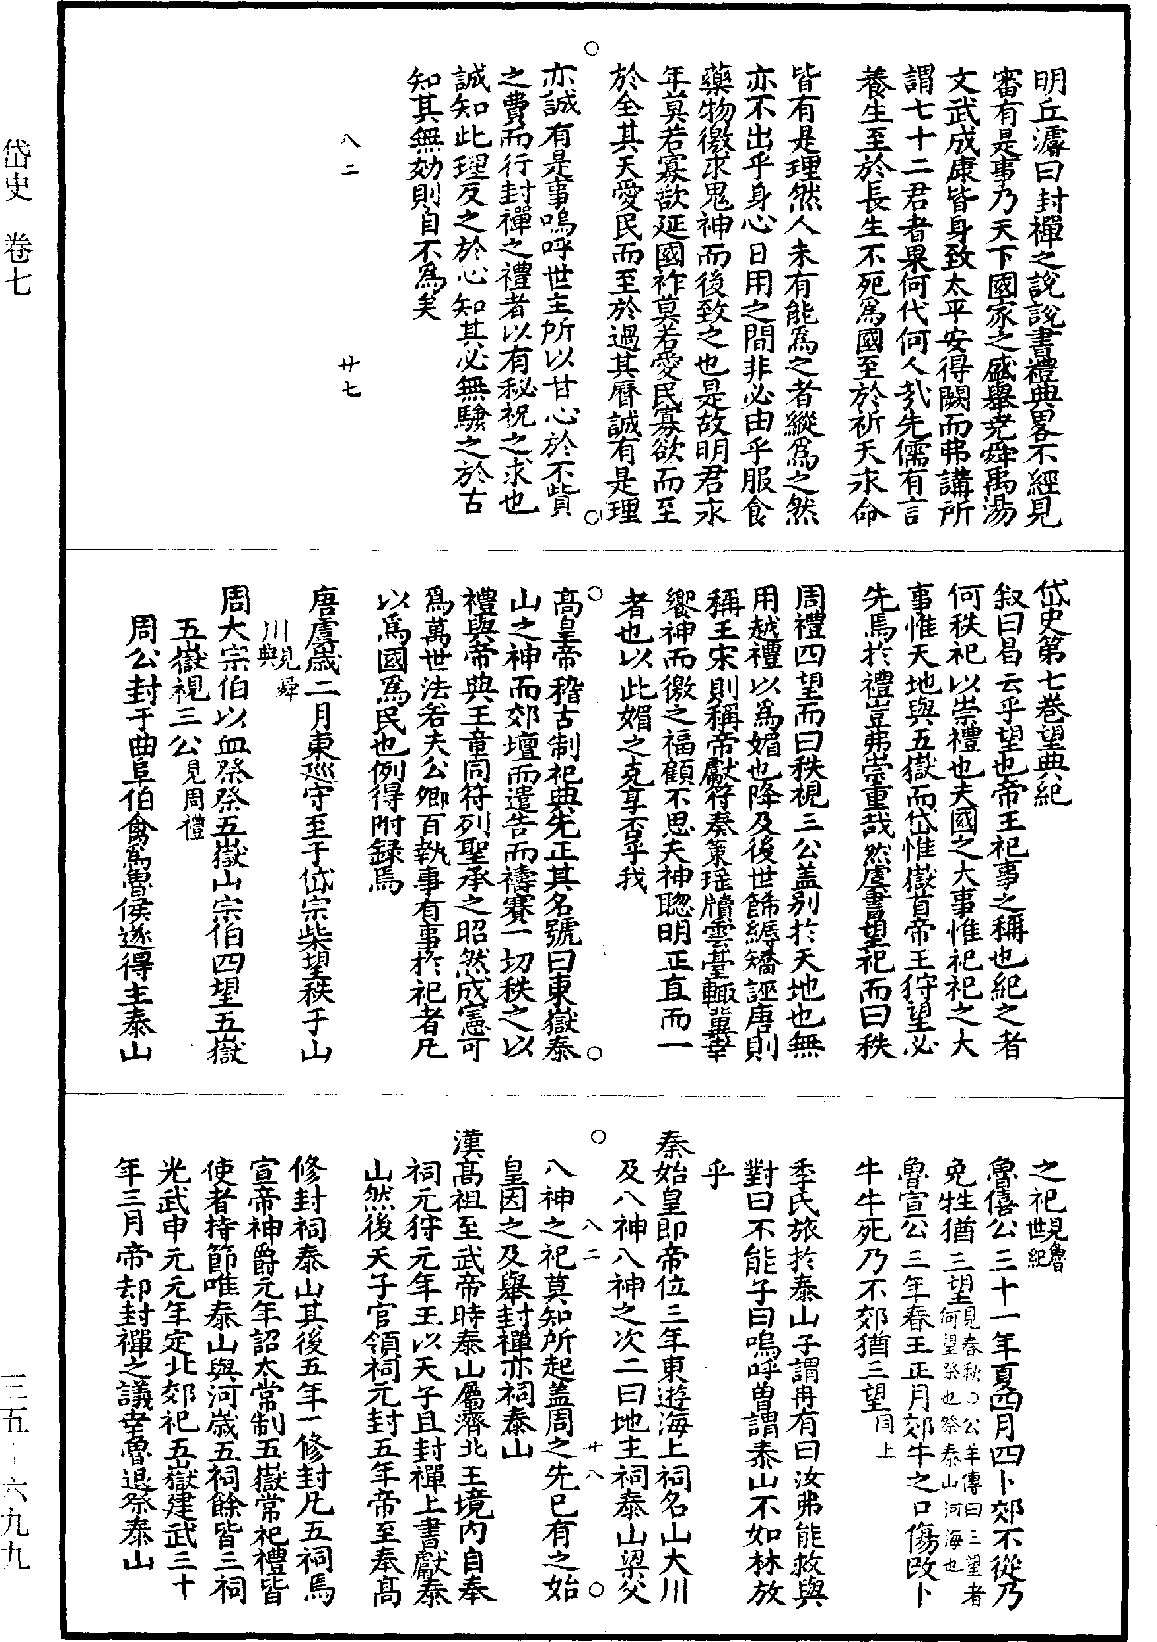 岱史　卷七
明丘濬曰封禪之說詩書禮典畧不經見
審有是事乃天下國家之盛舉堯舜禹湯
文武成康皆身致太平安得闕而弗講所
謂七十二君者果何代何人㢤先儒有言
養生至於長生不死爲國至於祈天求命
皆有是理然人未有能爲之者縱爲之然
亦不出乎身心日用之間非必由乎服食
藥物徼求鬼神而後致之也是故明君永
年莫若寡欲延國祚莫若愛民寡欲而至
於全其天愛民而至於過其曆誠有是理
亦誠有是事嗚呼世主所以甘心於不貲
之費而行封禪之禮者以有秘祝之求也
誠知此理反之於心知其必無驗之於古
知其無効則自不爲矣
八二　廿七
岱史第七卷望典紀
叙曰昌云乎望也帝王祀事之稱也紀之者
何秩祀以崇禮也夫國之大事惟祀祀之大
事惟天地與五嶽而岱惟嶽首帝王狩望必
先焉於禮豈弗崇重哉然虞書望祀而曰秩
周禮四望而曰秩視三公盖别於天地也無
用越禮以爲媚也降及後世飾縟矯誣唐則
稱王宋則稱帝獻符奏策瑶牘雲臺輙冀幸
饗神而徼之福顧不思夫神聰明正直而一
者也以此媚之克享否乎我
高皇帝稽古制祀典先正其名號曰東嶽泰
山之神而郊壇而遣告而禱賽一切秩之以
禮與帝典王章同符列聖承之昭然成憲可
爲萬世法若夫公卿百執事有事於祀者凡
以爲國爲民也例得附録焉
唐虞歲二月東廵守至于岱宗柴望秩于山
川見舜典
周大宗伯以血祭祭五嶽山宗伯四望五嶽
五嶽視三公見周禮
周公封于曲阜伯禽爲魯侯遂得主泰山
之祀見魯世紀
魯僖公三十一年夏四月四卜郊不從乃
免牲猶三望見春秋○公羊傳曰三望者何望祭也祭泰山河海也
魯宣公三年春王正月郊牛之口傷改卜
牛牛死乃不郊猶三望同上
季氏旅於泰山子謂冉有曰汝弗能救與
對曰不能子曰嗚呼曾謂泰山不如林放
乎
秦始皇即帝位三年東遊海上祠名山大川
及八神八神之次二曰地主祠泰山梁父
八二　廿八
八神之祀莫知所起盖周之先已有之始
皇因之及舉封禪亦祠泰山
漢高祖至武帝時泰山屬濟北王境内自奉
祠元狩元年王以天子且封禪上書獻泰
山然後天子官領祠元封五年帝至奉高
修封祠泰山其後五年一修封凡五祠焉
宣帝神爵元年詔太常制五嶽常祀禮皆
使者持節唯泰山與河歲五祠餘皆三祠
光武中元元年定北郊祀五嶽建武三十
年三月帝却封禪之議幸魯過祭泰山
三五—六九九